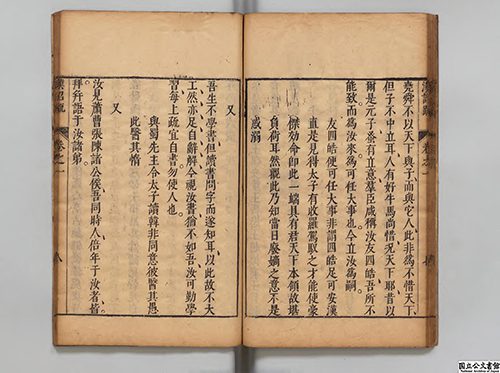 漢詔疏 卷之一
堯舜不以天下與子而與它人此非為不惜天下
但子不中立耳人有好牛馬尚惜況天下耶昔以
爾是元子蚤有立意羣臣咸稱汝友四皓吾所不
能致而為汝來為可任大事也今立汝為嗣
友四皓便為可任大事非謂四皓足可安漢
直是見得太子有收羅駕馭之才能使豪
傑効命即此一端具有君天下本領故堪
負荷耳然觀此乃知當日廢嫡之意不是
惑溺
又
吾生不學書但讀書問字而遂知耳以此故不大
工然亦足自辭解今視汝書猶不如吾汝可勤學
習每上疏宜自書勿使人也
與蜀先主令太子讀韓非同意彼醫其愚
此醫其惰
又
汝見蕭曹張陳諸公侯吾同時人倍年于汝者皆
拜并語于汝諸弟
漢詔疏 卷之一 八
国立公文書館
National Archives of Japan